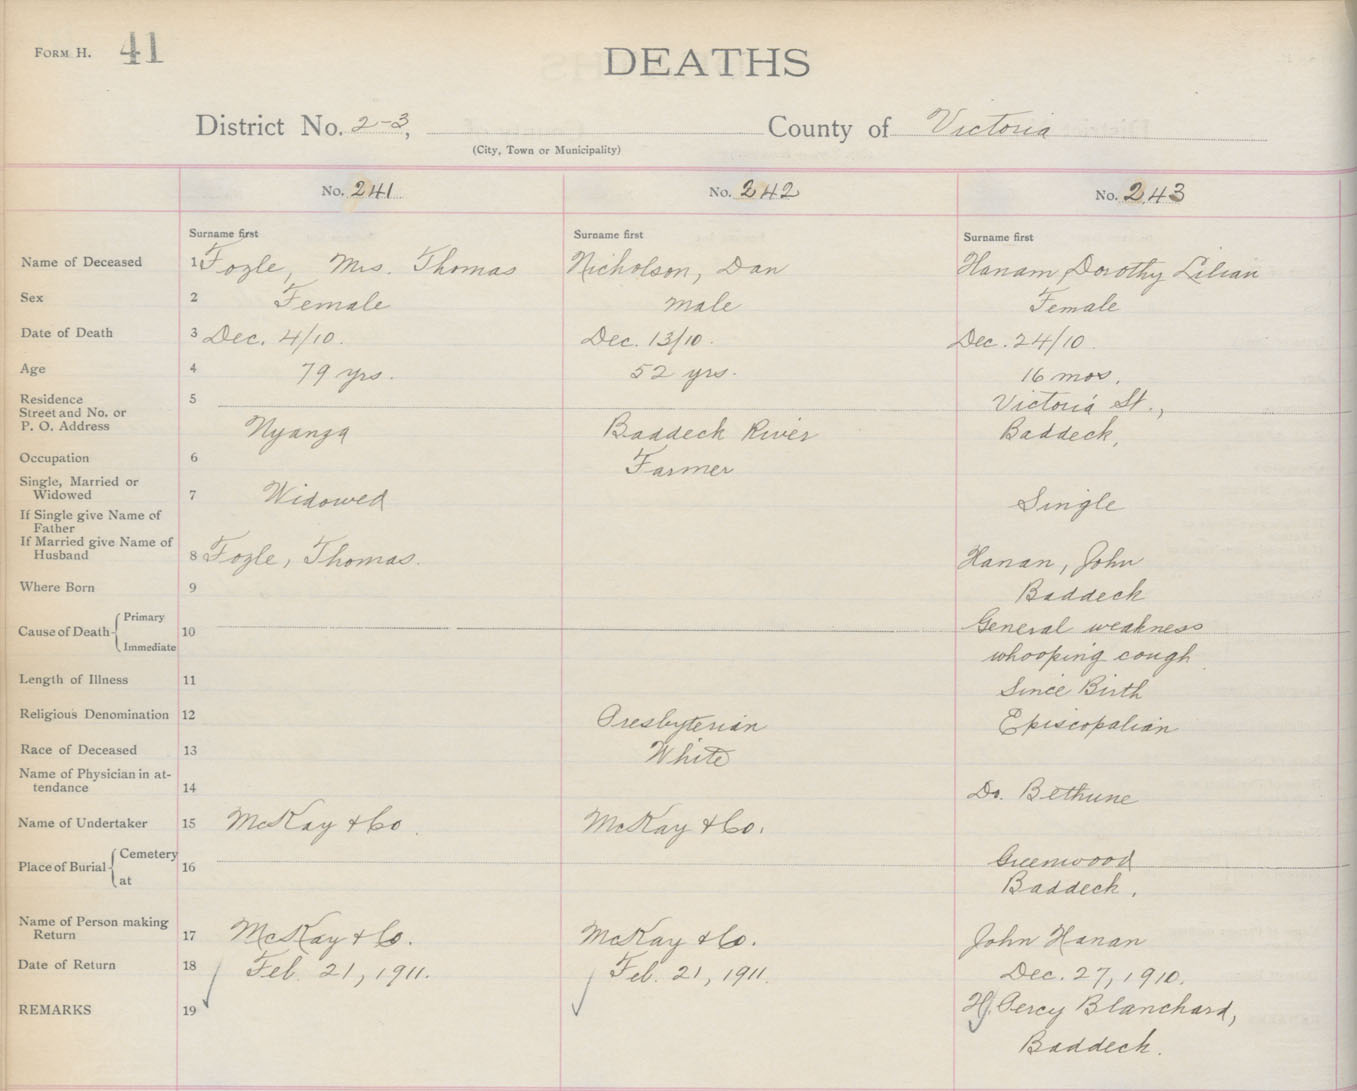 FORM H. 41
DEATHS
District No. 2-3, County of Victoria
(City, Town or Municipality)
No. 241 No. 242 No. 243
Surname first Surname first Surname first
Name of Deceased 1 Fozle, Mrs. Thomas Nicholson, Dan Hanam Dorothy Lilian
Sex 2 Female male Female
Date of Death 3 Dec. 4/10. Dec. 13/10. Dec. 24/10.
Age 4 79 yrs. 52 yrs. 16 mos.
Residence 5 Victoria St.,
Street and No. or
P. O. Address Nyanza Baddeck River Baddeck,
Occupation 6 Farmer
Single, Married or
Widowed 7 Widowed Single
If Single give Name of
Father
If Married give Name of
Husband 8 Fozle, Thomas. Hanan, John
Where Born 9 Baddeck
Cause of Death Primary 10 General weakness
Immediate whooping cough
Length of Illness 11 Since Birth
Religious Denomination 12 Presbyterian Episcopalian
Race of Deceased 13 White
Name of Physician in at-
tendance 14 Dr. Bethune
Name of Undertaker 15 McKay & Co. McKay & Co.
Place of Burial Cemetery 16 Greenwood
at Baddeck.
Name of Person making
Return 17 McKay & Co. McKay & Co. John Hanan
Date of Return 18 Feb. 21, 1911. Feb. 21, 1911. Dec. 27, 1910.
REMARKS 19 H. Percy Blanchard,
Baddeck.